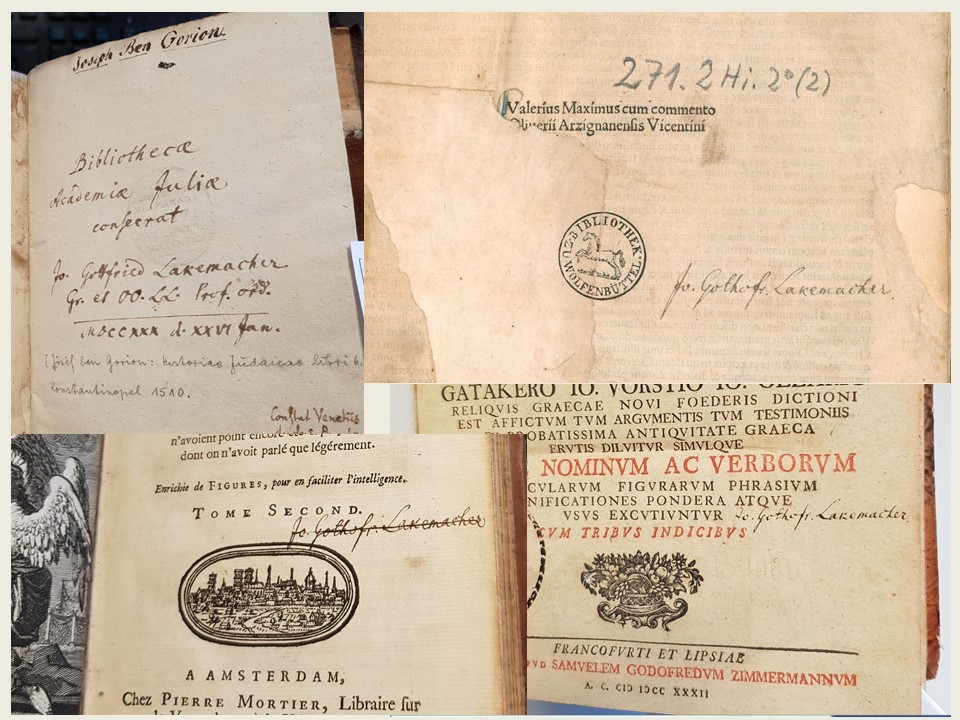 Joseph Ben Gorion.
Bibliothecæ
Academiæ Juliæ
consecrat
Jo. Gottfried Lakemacher
Gr. et OO. LL. Prof. ord.
MDCCXXX d. XXVI Jan.
(Josef ben Gorion: Historiae Judaicae libri 6.
Constantinopel 1510.
Constat Venetiis
271. 2 Hi. 2° (2)
Valerius Maximus cum commento
Oliuerii Arzignanensis Vicentini
BIBLIOTHEK
Z U
WOLFENBÜTTEL
Jo. Gothofr. Lakemacher.
n'avoient point encore
dont on n'avoit parlé que légérement.
Enrichie de FIGURES, pour en faciliter l'intelligence.
TOME SECOND.
Jo. Gothofr. Lakemacher
A AMSTERDAM,
Chez PIERRE MORTIER, Libraire sur
GATAKERO IO. VORSTIO IO.
RELIQVIS GRAECAE NOVI FOEDERIS DICTIONI
EST AFFICTVM TVM ARGVMENTIS TVM TESTIMONIIS
PROBATISSIMA ANTIQVITATE GRAECA
ERVTIS DILVITVR SIMVLQVE
NOMINVM AC VERBORVM
CVLARVM FIGVRARVM PHRASIVM
NIFICATIONES PONDERA ATQVE
VSVS EXCVTIVNTVR Jo. Gothofr. Lakemacher
CVM TRIBVS INDICIBVS
FRANCOFVRTI ET LIPSIAE
SAMVELEM GODOFREDVM ZIMMERMANNVM
A. C. CIƆ IƆCC XXXII